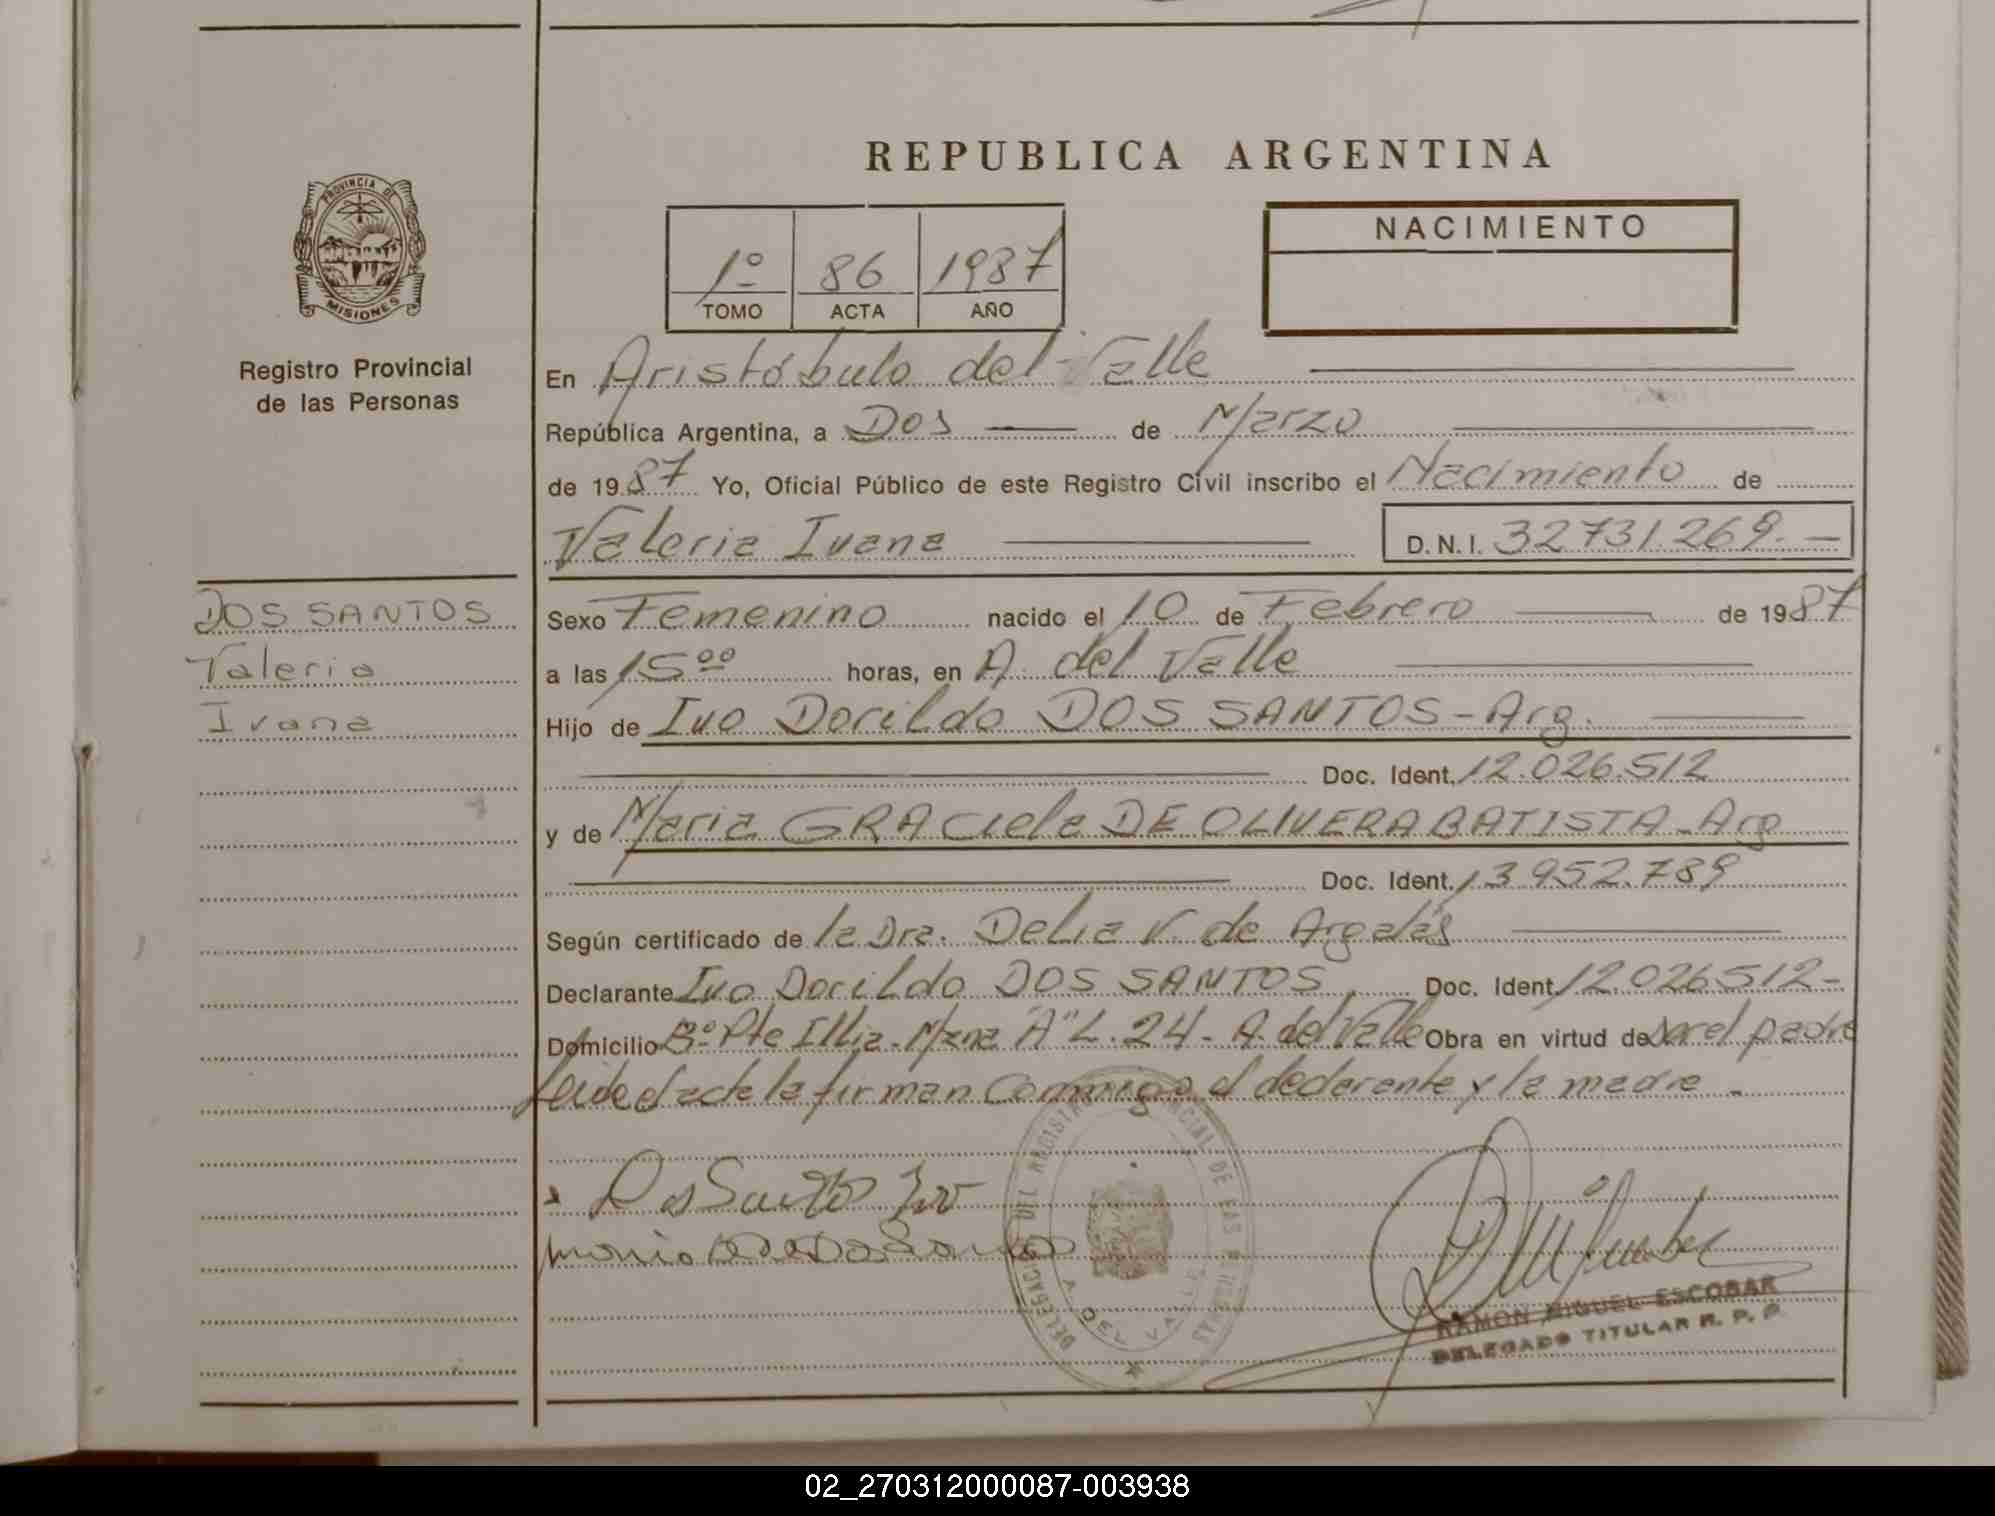 REPUBLICA ARGENTINA
PROVINCIA DE
MISIONES
Registro Provincial
de las Personas
1º 86 1987
TOMO ACTA AÑO
NACIMIENTO
En Aristóbulo del Valle
República Argentina, a Dos de Marzo
de 1987 Yo, Oficial Público de este Registro Civil inscribo el Nacimiento de
Valeria Ivana D.N.I. 32731.269.-
DOS SANTOS
Valeria
Ivana
Sexo Femenino nacido el 10 de Febrero de 1987
a las 15ºº horas, en A. del Valle
Hijo de Ivo Dorildo DOS SANTOS-Arg.
Doc. Ident. 12.026.512
y de Maria GRACiela DE OLIVERA BATISTA-Arg
Doc. Ident. 13.952.789
Según certificado de la Dra. Delia V. de
Declarante Ivo Dorildo DOS SANTOS Doc. Ident. 12.026.512-
Domicilio Bº Pte Illia-Mzna "A" L.24- A. del Valle Obra en virtud de ser el padre
Leida el acta la firman Conmigo el declarante y la madre-
Dos Santos Ivo
DEL VALLE
RAMON MIGUEL ESCOBAR
DELEGADO TITULAR R. P. P.
02_270312000087-003938